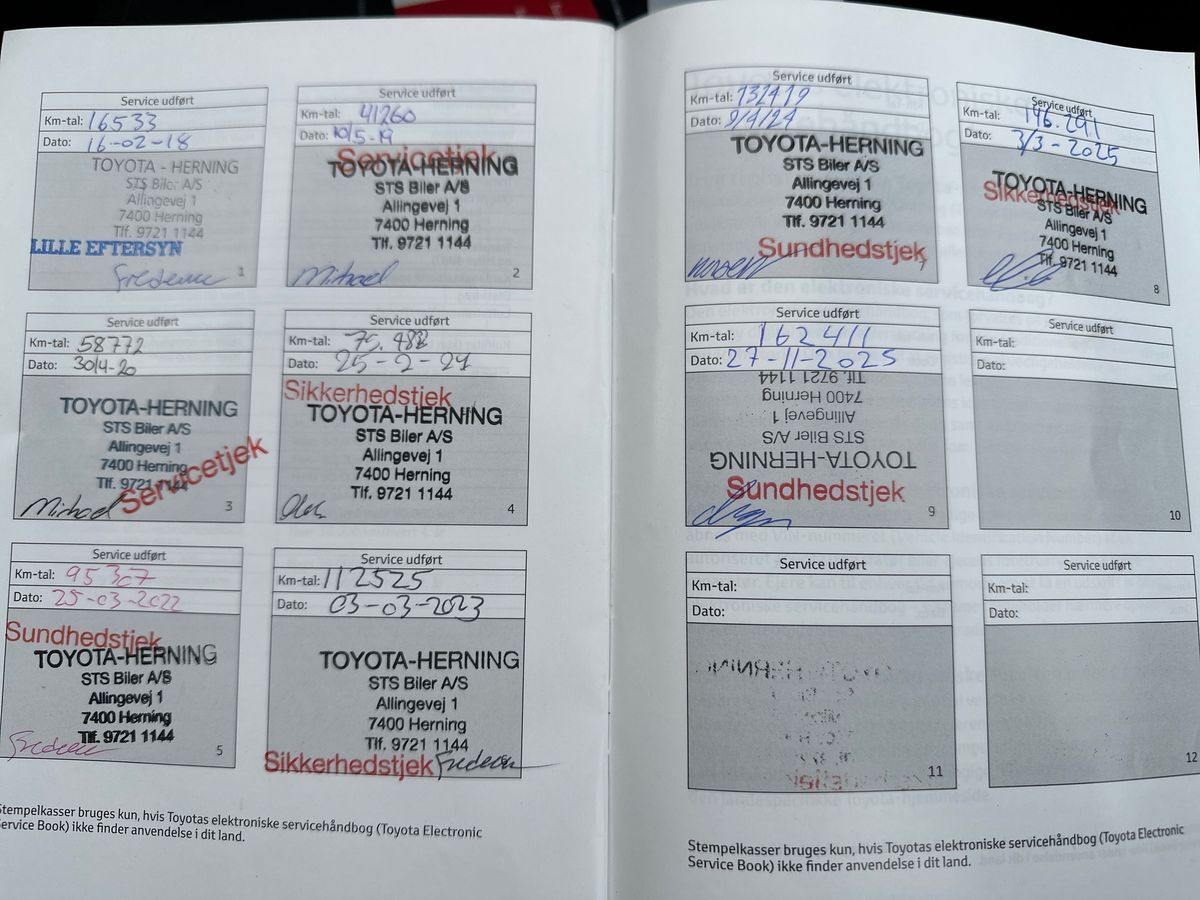 Service udført
Km-tal: 16533
Dato: 16-02-18
TOYOTA - HERNING
STS Biler A/S
Allingevej 1
7400 Herning
Tlf. 9721 1144
LILLE EFTERSYN
1
Service udført
Km-tal: 41260
Dato: 10/5-19
Servicetjek
TOYOTA-HERNING
STS Biler A/S
Allingevej 1
7400 Herning
Tlf. 9721 1144
Michael
2
Service udført
Km-tal: 58772
Dato: 30/4-20
TOYOTA-HERNING
STS Biler A/S
Allingevej 1
7400 Herning
Tlf. 9721 1144
Servicetjek
Michael
3
Service udført
Km-tal: 79.488
Dato: 25-2-21
Sikkerhedstjek
TOYOTA-HERNING
STS Biler A/S
Allingevej 1
7400 Herning
Tlf. 9721 1144
4
Service udført
Km-tal: 95307
Dato: 25-03-2022
Sundhedstjek
TOYOTA-HERNING
STS Biler A/S
Allingevej 1
7400 Herning
Tlf. 9721 1144
5
Service udført
Km-tal: 112525
Dato: 03-03-2023
TOYOTA-HERNING
STS Biler A/S
Allingevej 1
7400 Herning
Tlf. 9721 1144
Sikkerhedstjek
Stempelkasser bruges kun, hvis Toyotas elektroniske servicehåndbog (Toyota Electronic
Service Book) ikke finder anvendelse i dit land.
Service udført
Km-tal: 131419
Dato: 9/4/24
TOYOTA-HERNING
STS Biler A/S
Allingevej 1
7400 Herning
Tlf. 9721 1144
Sundhedstjek
7
Service udført
Km-tal: 146.291
Dato: 3/3-2025
Sikkerhedstjek
TOYOTA-HERNING
STS Biler A/S
Allingevej 1
7400 Herning
Tlf. 9721 1144
8
Service udført
Km-tal: 162411
Dato: 27-11-2025
Tlf. 9721 1144
7400 Herning
Allingevej 1
STS Biler A/S
TOYOTA-HERNING
Sundhedstjek
9
Service udført
Km-tal:
Dato:
10
Service udført
Km-tal:
Dato:
11
Service udført
Km-tal:
Dato:
12
Stempelkasser bruges kun, hvis Toyotas elektroniske servicehåndbog (Toyota Electronic
Service Book) ikke finder anvendelse i dit land.